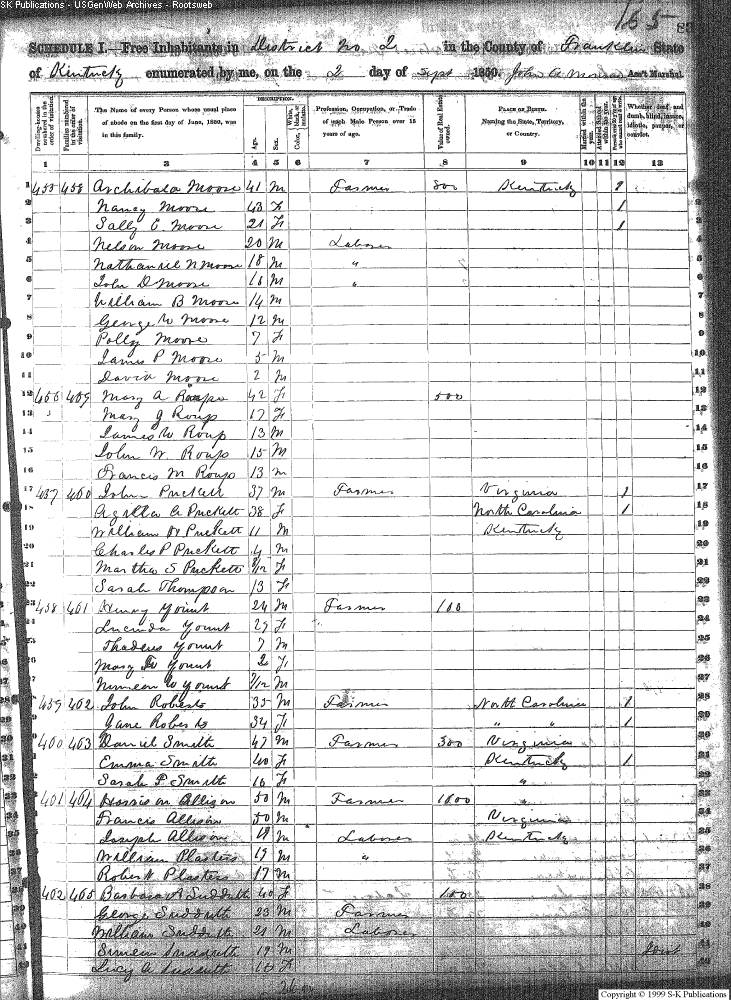 S-K Publications - USGenWeb Archives - Rootsweb
155
SCHEDULE I.—Free Inhabitants in District No 2 in the County of Franklin State
of Kentucky enumerated by me, on the 2 day of Sept 1850. Ass't Marshal.
Dwelling-houses numbered in the order of visitation. Families numbered in the order of visitation. The Name of every Person whose usual place of abode on the first day of June, 1850, was in this family. DESCRIPTION. Age. Sex. Color, White, black, or mulatto. Profession, Occupation, or Trade of each Male Person over 15 years of age. Value of Real Estate owned. PLACE OF BIRTH. Naming the State, Territory, or Country. Married within the year. Attended School within the year. Whether deaf and dumb, blind, insane, idiotic, pauper, or convict.
1 2 3 4 5 6 7 8 9 10 11 12 13
1 458 Archibald Moore 41 M Farmer 800 Kentucky 1
2 Nancy Moore 43 F 1 2
3 Sally E. Moore 21 F 1 3
4 Nelson Moore 20 M Laborer 4
5 Nathaniel N Moore 18 M " 5
6 John D Moore 16 M " 6
7 William B Moore 14 M 7
8 George W Moore 12 M 8
9 Polly Moore 7 F 9
10 James P Moore 5 M 10
11 David Moore 2 M 11
12 459 Mary A Roup 42 F 500 12
13 Mary J Roup 17 F 13
14 James W Roup 13 M 14
15 John W. Roup 15 M 15
16 Francis M Roup 13 M 16
17 460 John Puckett 37 M Farmer Virginia 1 17
18 A Puckett 38 F North Carolina 1 18
19 William H Puckett 11 M Kentucky 19
20 Charles P Puckett 4 M 20
21 Martha S Puckett /12 F 21
22 Sarah Thompson 13 F 22
23 458 461 Henry Yount 24 M Farmer 100 23
24 Lucinda Yount 29 F 24
25 Thadeus Yount 7 M 25
26 Mary Yount 2 F 26
27 W Yount /12 M 27
28 459 462 John Roberts 35 M Farmer North Carolina 1 28
29 Jane Roberts 34 F " " 1 29
30 460 463 Daniel Smith 47 M Farmer 300 Virginia
31 Emma Smith 40 F Kentucky 1
32 Sarah F Smith 16 F "
33 461 464 Harrison Allison 50 M Farmer 1000 "
34 Francis Allison 50 M Virginia
35 Joseph Allison 18 M Laborer Kentucky
36 William Plasters 19 M "
37 Robert Plasters 17 M
38 462 465 Barbara A Sudduth 40 F 100
39 George Sudduth 23 M Farmer
40 William Sudduth 21 M Laborer
41 Simeon Sudduth 19 M
42 Lucy A Sudduth 16 F
Copyright © 1999 S-K Publications